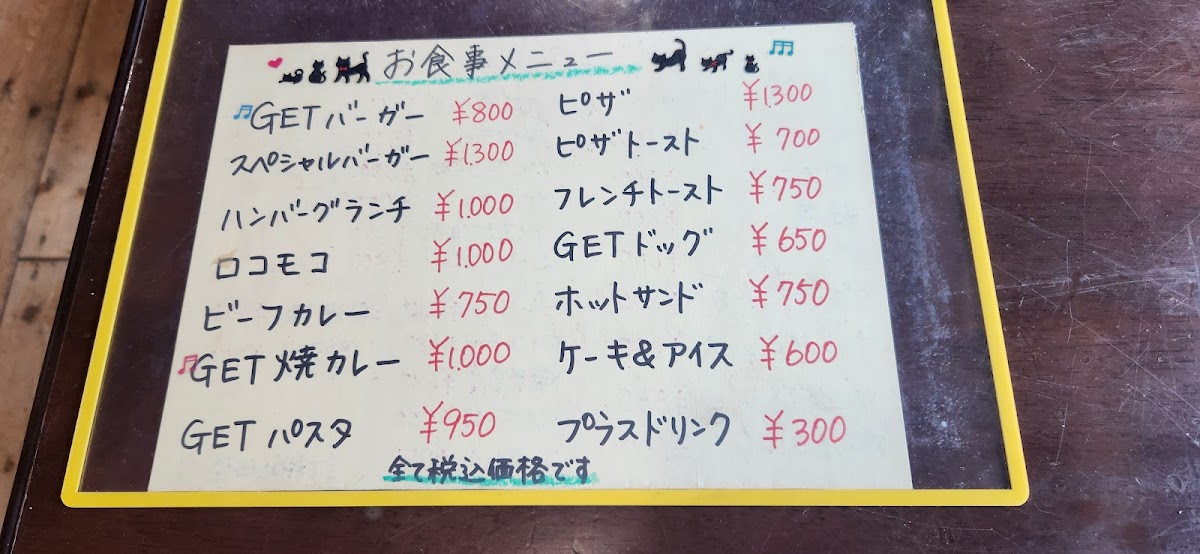 お食事メニュー
GETバーガー ¥800
スペシャルバーガー ¥1300
ハンバーグランチ ¥1.000
ロコモコ ¥1.000
ビーフカレー ¥750
GET焼カレー ¥1.000
GETパスタ ¥950
ピザ ¥1300
ピザトースト ¥700
フレンチトースト ¥750
GETドッグ ¥650
ホットサンド ¥750
ケーキ&アイス ¥600
プラスドリンク ¥300
全て税込価格です